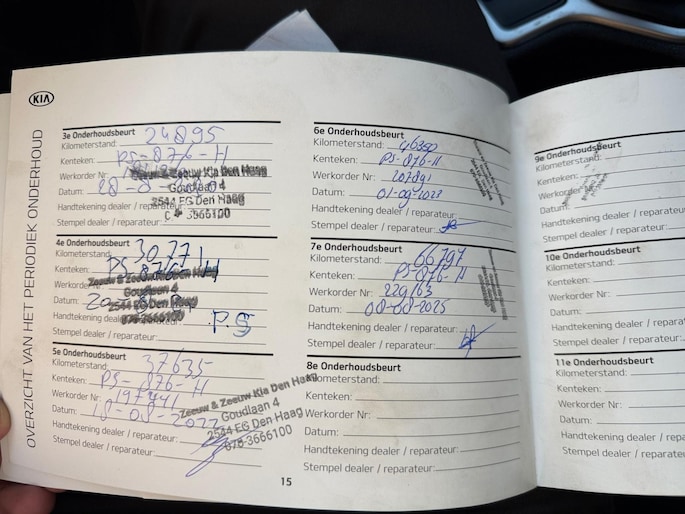 KIA
OVERZICHT VAN HET PERIODIEK ONDERHOUD
3e Onderhoudsbeurt
Kilometerstand: 24895
Kenteken: PS-876-H
Werkorder Nr:
Datum: 28-
Handtekening dealer / reparateur:
Stempel dealer / reparateur:
Zeeuw & Zeeuw Kia Den Haag
Goudlaan 4
2544 EG Den Haag
3666100
4e Onderhoudsbeurt
Kilometerstand: 30771
Kenteken: PS-876-H
Werkorder Nr:
Datum: 20
Handtekening dealer / reparateur:
Stempel dealer / reparateur:
Zeeuw & Zeeuw Kia Den Haag
Goudlaan 4
2544 EG Den Haag
070-3666100
P.S
5e Onderhoudsbeurt
Kilometerstand: 37635
Kenteken: PS-876-H
Werkorder Nr: 197441
Datum: 18-08-2022
Handtekening dealer / reparateur:
Stempel dealer / reparateur:
Zeeuw & Zeeuw Kia Den Haag
Goudlaan 4
2544 EG Den Haag
070-3666100
15
6e Onderhoudsbeurt
Kilometerstand: 46350
Kenteken: PS-876-H
Werkorder Nr: 207891
Datum: 01-09-2023
Handtekening dealer / reparateur:
Stempel dealer / reparateur:
7e Onderhoudsbeurt
Kilometerstand: 66797
Kenteken: PS-876-H
Werkorder Nr: 229163
Datum: 08-08-2025
Handtekening dealer / reparateur:
Stempel dealer / reparateur:
8e Onderhoudsbeurt
Kilometerstand:
Kenteken:
Werkorder Nr:
Datum:
Handtekening dealer / reparateur:
Stempel dealer / reparateur:
9e Onderhoudsbeurt
Kilometerstand:
Kenteken:
Werkorder Nr:
Datum:
Handtekening dealer / repara
Stempel dealer / reparateur:
10e Onderhoudsbeurt
Kilometerstand:
Kenteken:
Werkorder Nr:
Datum:
Handtekening dealer / repara
Stempel dealer / reparateur:
11e Onderhoudsbeurt
Kilometerstand:
Kenteken:
Werkorder Nr:
Datum:
Handtekening dealer / reparat
Stempel dealer / reparateur: